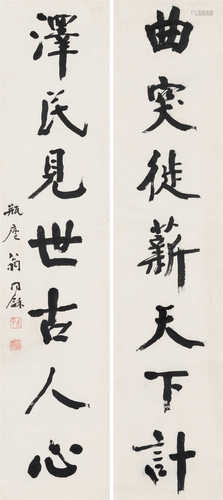 曲突徙薪天下計
澤民見世古人心
瓶廬翁同龢